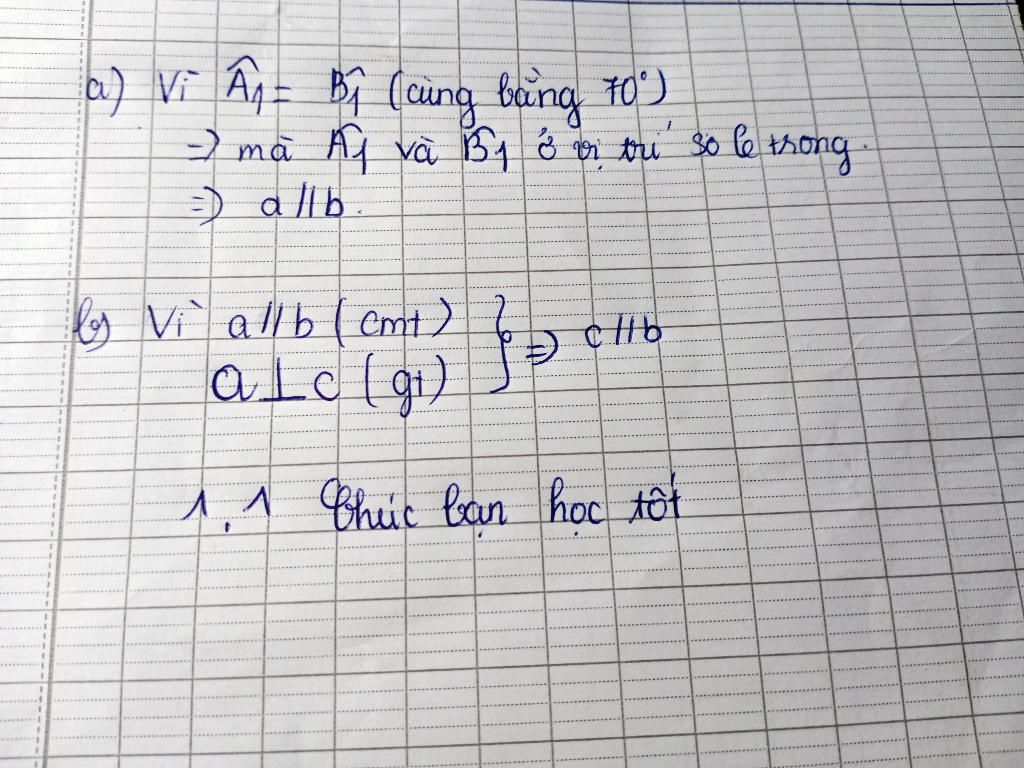 a) Vì Â1 = B̂1 (cùng bằng 70°)
=> mà Â1 và B̂1 ở vị trí so le trong.
=> a // b.
b) Vì a // b (cmt)
a ⊥ c (gt) } => c // b
^.^ Chúc bạn học tốt